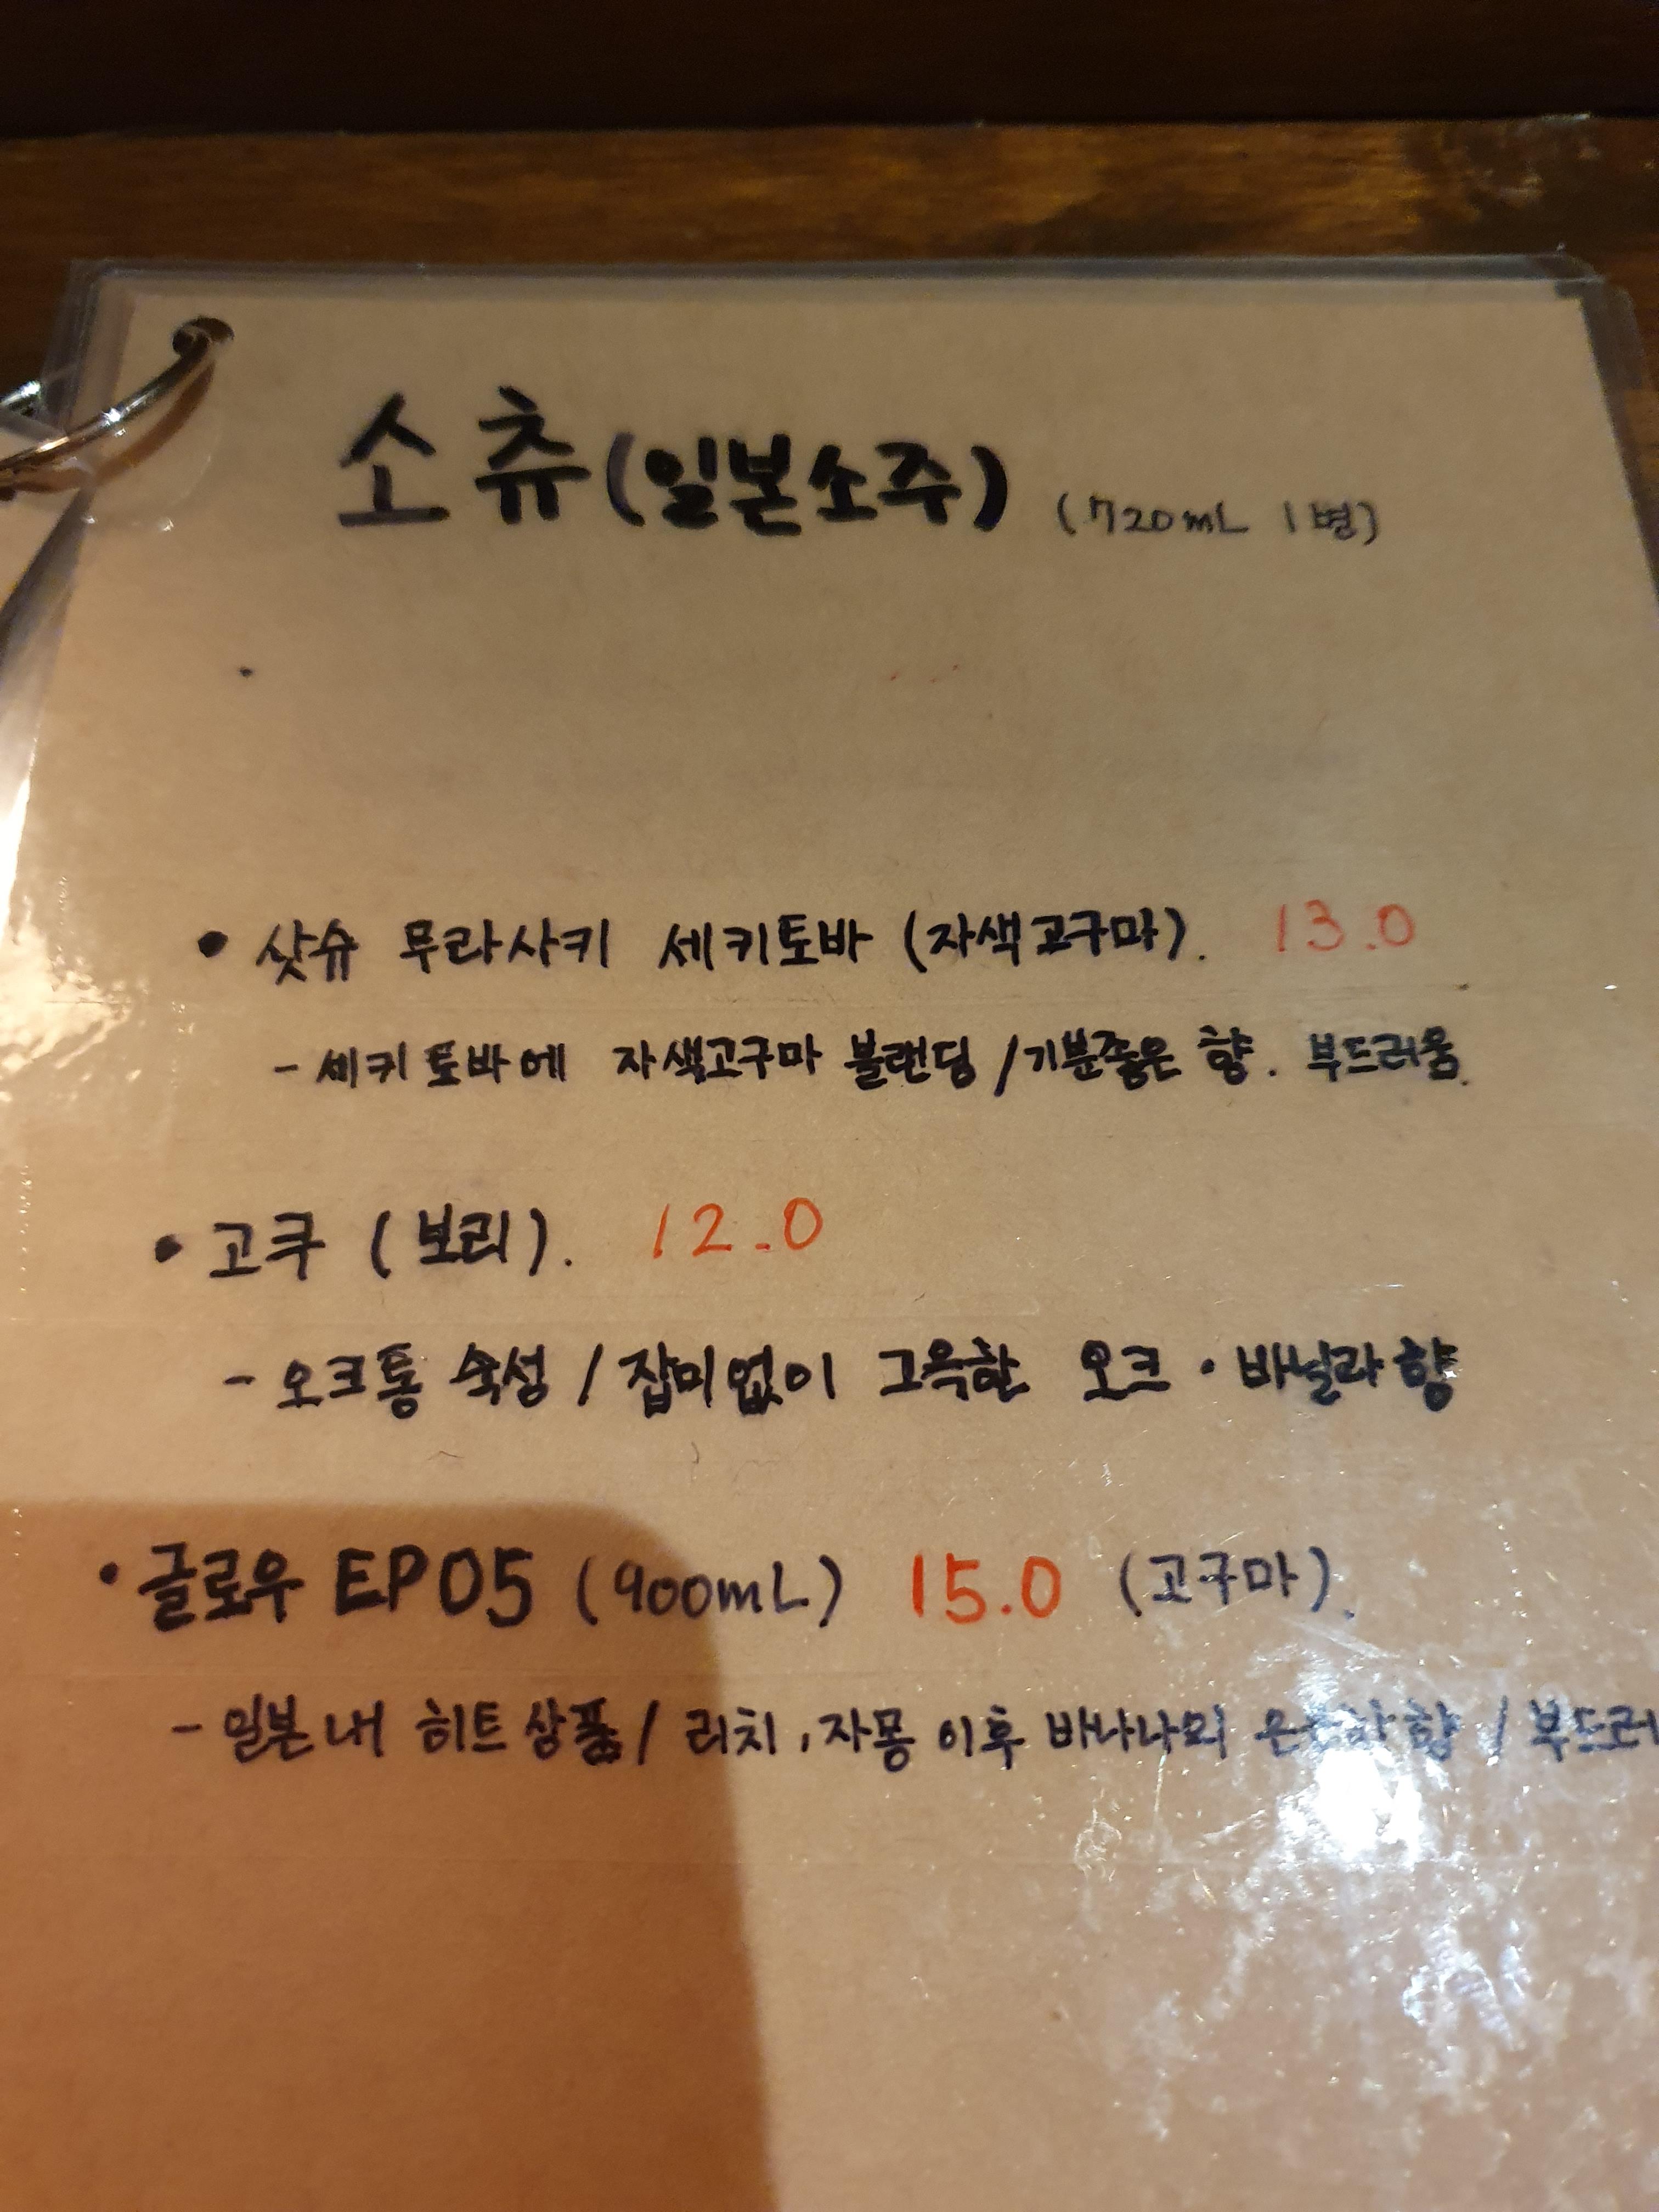 소츄(일본소주) (720mL 1병)
• 삿슈 무라사키 세키토바 (자색고구마). 13.0
- 세키토바에 자색고구마 블랜딩 / 기분좋은 향. 부드러움.
• 고쿠 (보리). 12.0
- 오크통 숙성 / 잡미없이 그윽한 오크 · 바닐라향
• 글로우 EP05 (900mL) 15.0 (고구마).
- 일본내 히트상품 / 리치, 자몽 이후 바나나의 향 / 부드러